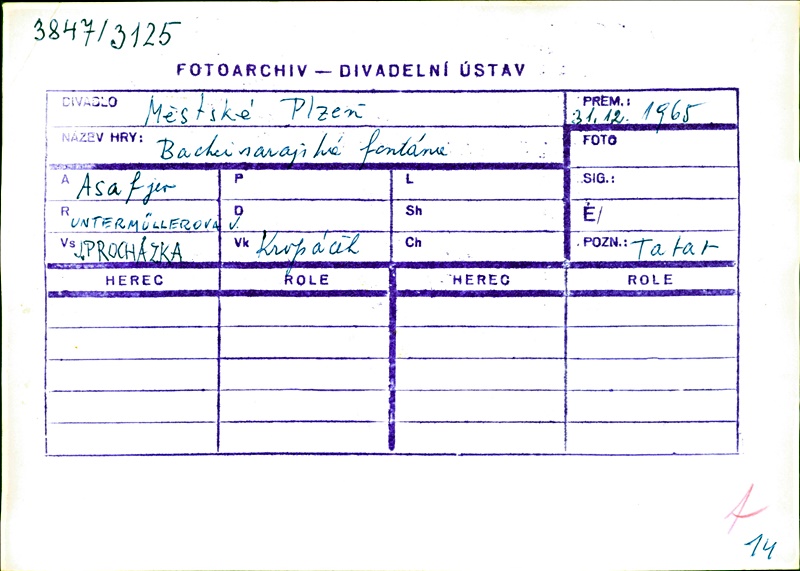 3847/3125
FOTOARCHIV — DIVADELNÍ ÚSTAV
DIVADLO Městské Plzeň PREM.: 31.12. 1965
NÁZEV HRY: Bachčisarajská fontána FOTO
A Asafjev P L SIG.:
R UNTERMÜLLEROVA J. D Sh É/
Vs J.PROCHÁZKA Vk Kropáček Ch POZN.: Tatar
HEREC ROLE HEREC ROLE
14